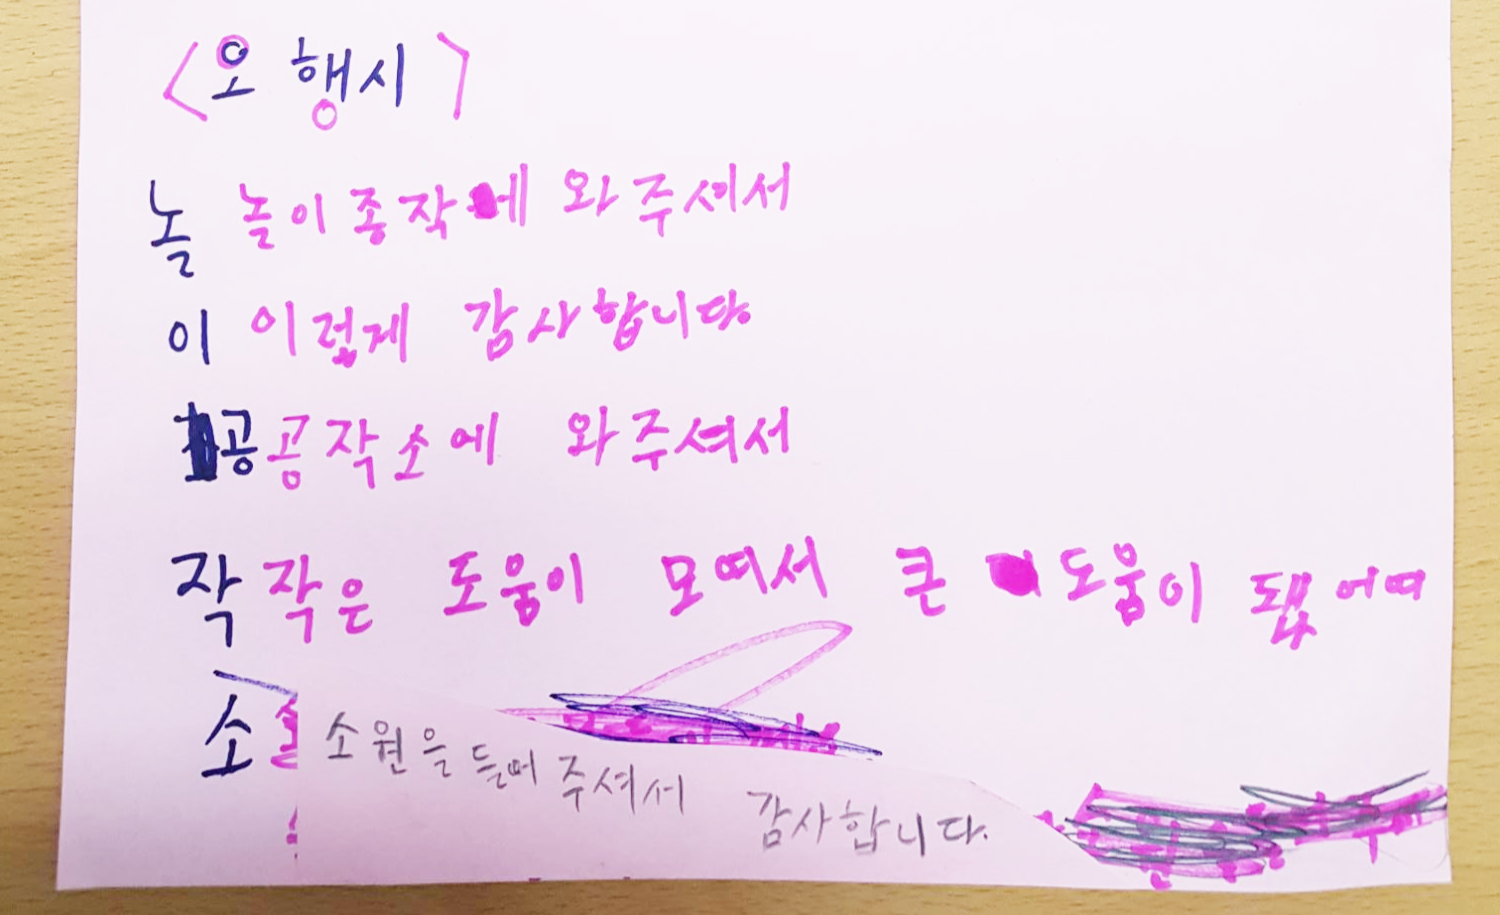 <오행시>
놀 놀이종작에 와주셔서
이 이렇게 감사합니다
공 공작소에 와주셔서
작 작은 도움이 모여서 큰 도움이 됐어여
소 소원을 들어 주셔서 감사합니다.